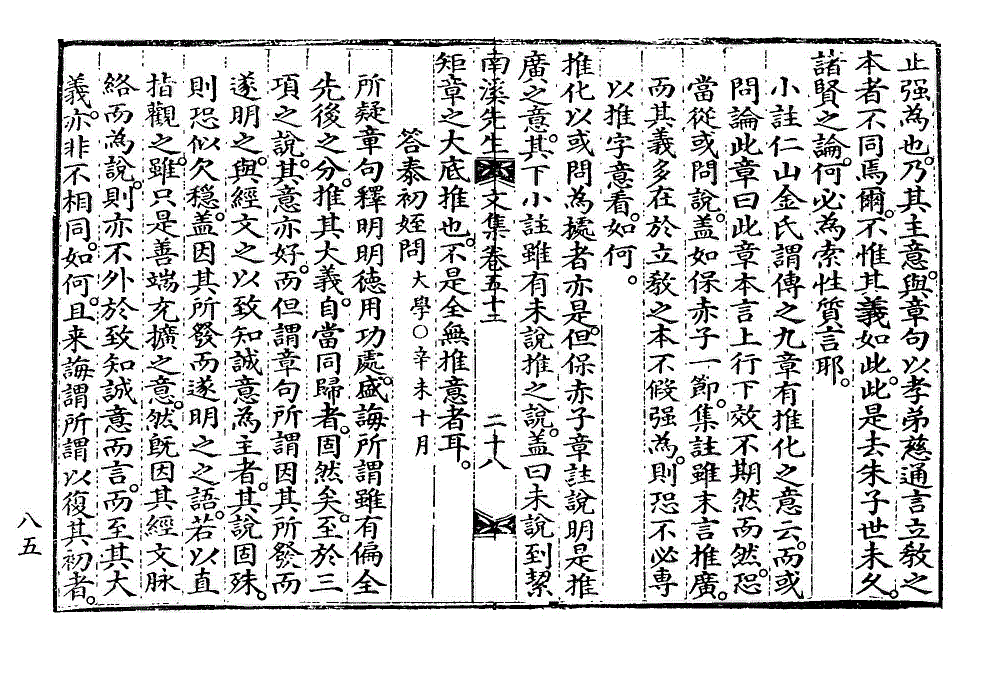 止强為也。乃其主意。與章句以孝弟慈通言立敎之
本者不同焉爾。不惟其義如此。此是去朱子世未久。
諸賢之論。何必為索性質言耶。
小註仁山金氏謂傳之九章有推化之意云。而或
問論此章曰此章本言上行下效不期然而然。恐
當從或問說。盖如保赤子一節。集註雖末言推廣。
而其義多在於立敎之本不假强為。則恐不必專
以推字意看。如何。
推化以或問為據者亦是。但保赤子章註說明是推
廣之意。其下小註雖有未說推之說。盖曰未說到絜
南溪先生文集卷五十三 二十八
矩章之大底推也。不是全無推意者耳。
答泰初姪問 大學○辛未十月
所疑章句釋明明德用功處。盛誨所謂雖有偏全
先後之分。推其大義。自當同歸者。固然矣。至於三
項之說。其意亦好。而但謂章句所謂因其所發而
遂明之。與經文之以致知誠意為主者。其說固殊。
則恐似欠穩。盖因其所發而遂明之之語。若以直
指觀之。雖只是善端充擴之意。然旣因其經文脉
絡而為說。則亦不外於致知誠意而言。而至其大
義。亦非不相同。如何。且来誨謂所謂以復其初者。
八五